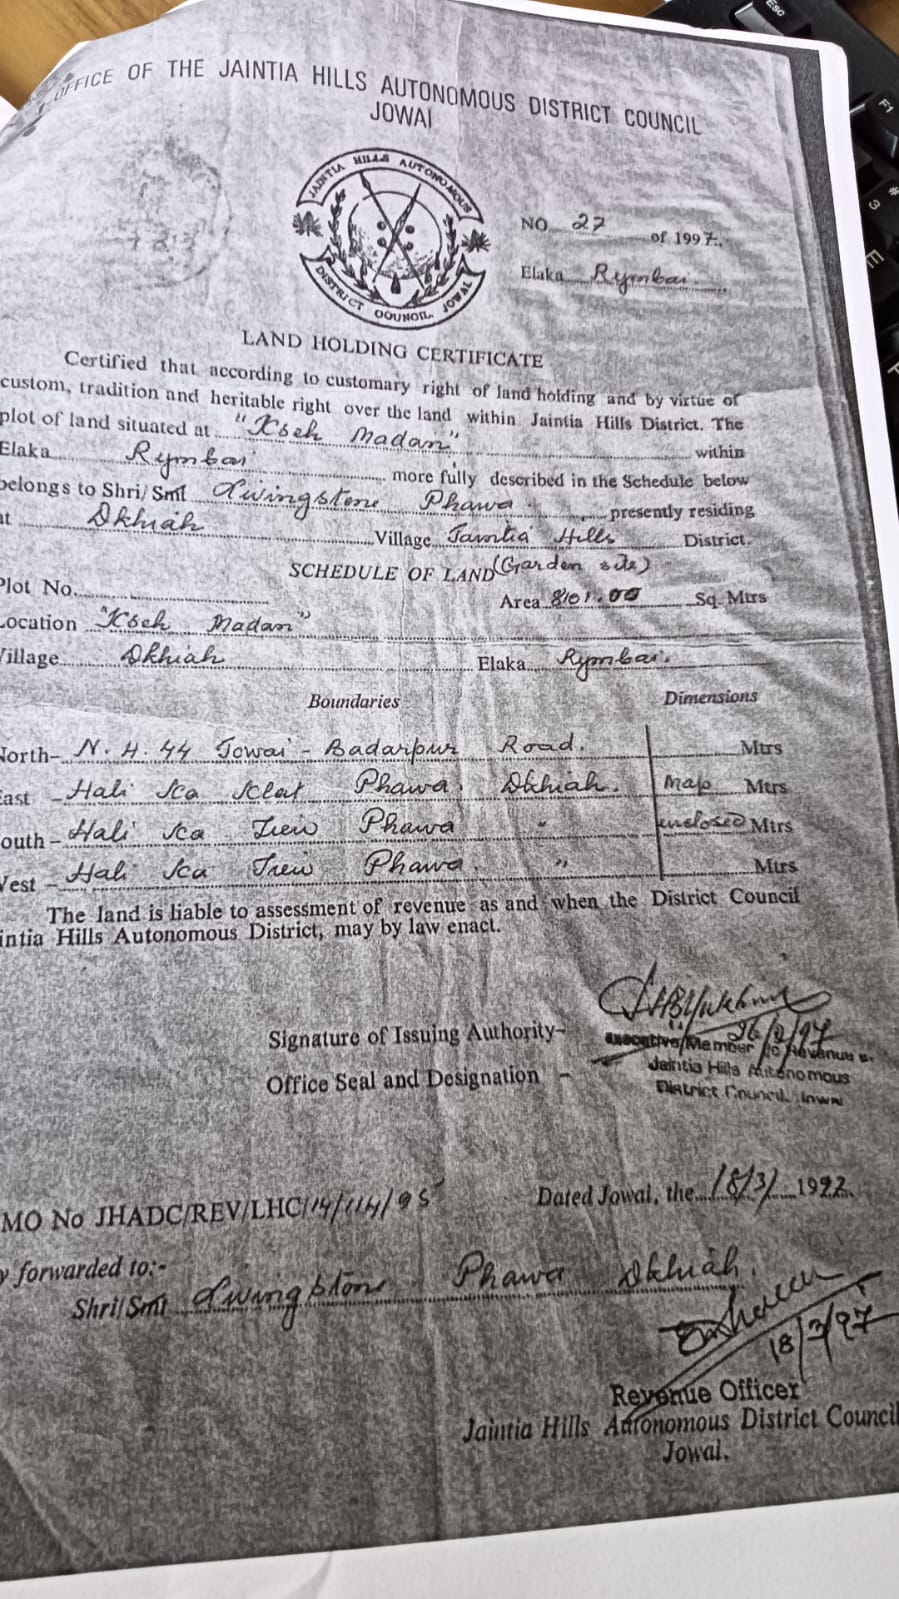 OFFICE OF THE JAINTIA HILLS AUTONOMOUS DISTRICT COUNCIL
JOWAI
JAINTIA HILLS AUTONOMOUS
DISTRICT COUNCIL, JOWAI
NO 27 of 1997.
Elaka Rymbai.
LAND HOLDING CERTIFICATE
Certified that according to customary right of land holding and by virtue of
custom, tradition and heritable right over the land within Jaintia Hills District. The
plot of land situated at "Kseh Madan" within
Elaka Rymbai more fully described in the Schedule below
belongs to Shri/Smt Livingstone Phawa presently residing
at Dkhiah Village Jaintia Hills District.
SCHEDULE OF LAND (Garden site)
Plot No. Area 8101.00 Sq. Mtrs
Location "Kseh Madan"
Village Dkhiah Elaka Rymbai.
Boundaries Dimensions
North- N.H. 44 Jowai - Badarpur Road. Mtrs
East - Hali ka Klet Phawa. Dkhiah. map Mtrs
South - Hali ka Treiw Phawa " enclosed Mtrs
West - Hali ka Treiw Phawa " Mtrs
The land is liable to assessment of revenue as and when the District Council
intia Hills Autonomous District, may by law enact.
Signature of Issuing Authority-
Executive Member i/c Revenue
Office Seal and Designation -
Jaintia Hills Autonomous
District Council, Jowai
MO No JHADC/REV/LHC/14/114/95 Dated Jowai, the 18/3/ 1997.
y forwarded to:-
Shri/Smt Livingstone Phawa Dkhiah.
18/3/97
Revenue Officer
Jaintia Hills Autonomous District Council
Jowai.
Esc
F1
#
3
E